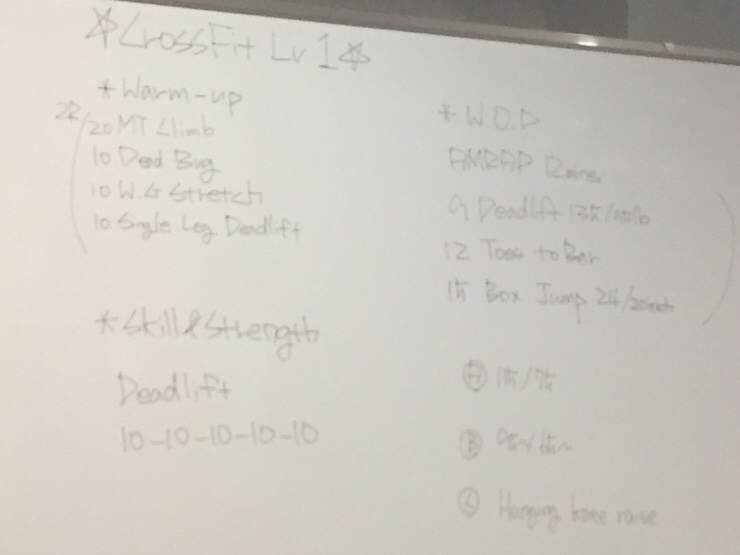 ☆CrossFit Lv 1☆
* Warm-up
2R
20 MT Climb
10 Dead Bug
10 W.G Stretch
10 Single Leg Deadlift
* Skill & Strength
Deadlift
10-10-10-10-10
* W.O.D
AMRAP 12mins
9 Deadlift 135/95lb
12 Toes to Bar
15 Box Jump 24/20inch
Ⓐ
Ⓑ
Ⓒ Hanging knee raise